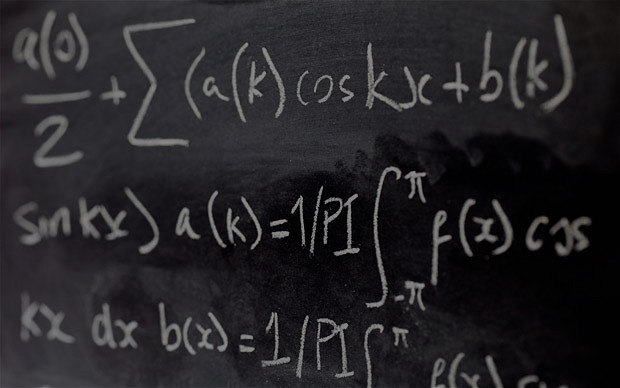 a(0)/2 + ∑ (a(k) cos kx + b(k)
sin kx) a(k) = 1/PI ∫ π -π f(x) cos
kx dx b(x) = 1/PI ∫ π f(x)